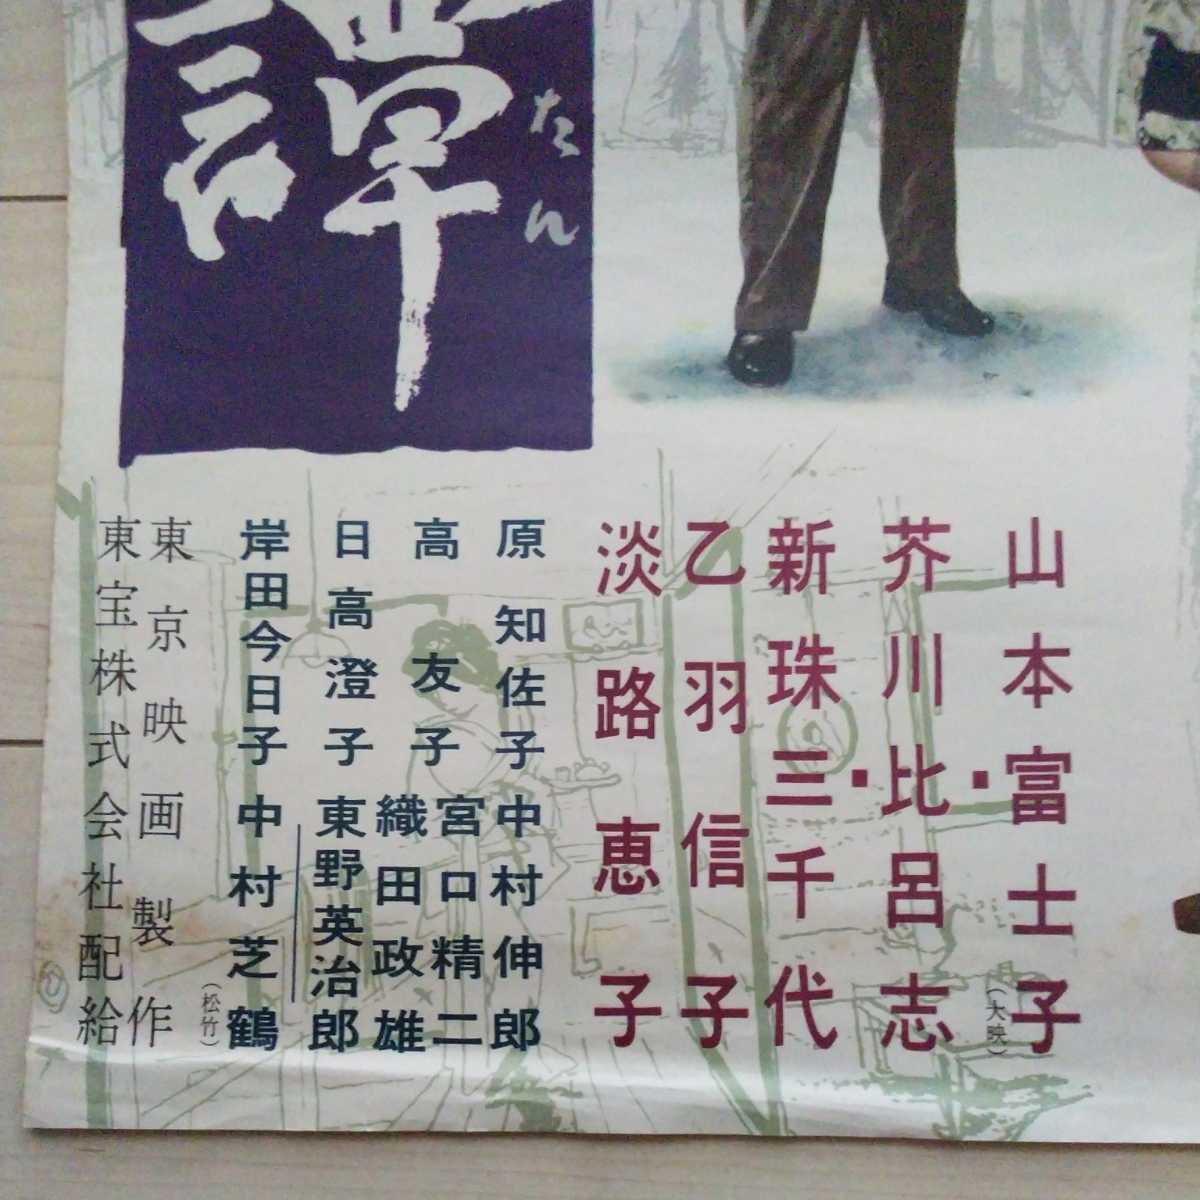 譚
たん
山本富士子
(大映)
芥川比呂志
新珠三千代
乙羽信子
淡路恵子
原知佐子
中村伸郎
高友子
宮口精二
織田政雄
日高澄子
東野英治郎
岸田今日子
中村芝鶴
(松竹)
東京映画製作
東宝株式会社配給